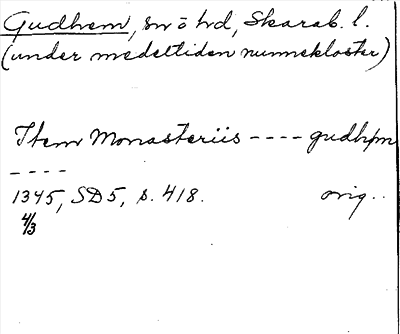 Gudhem, sn o hd, Skarab. l.
(under medeltiden nunnekloster)
Item Monasteriis ---- gudhem
----
1345, SD 5, s. 418. orig.
4/3